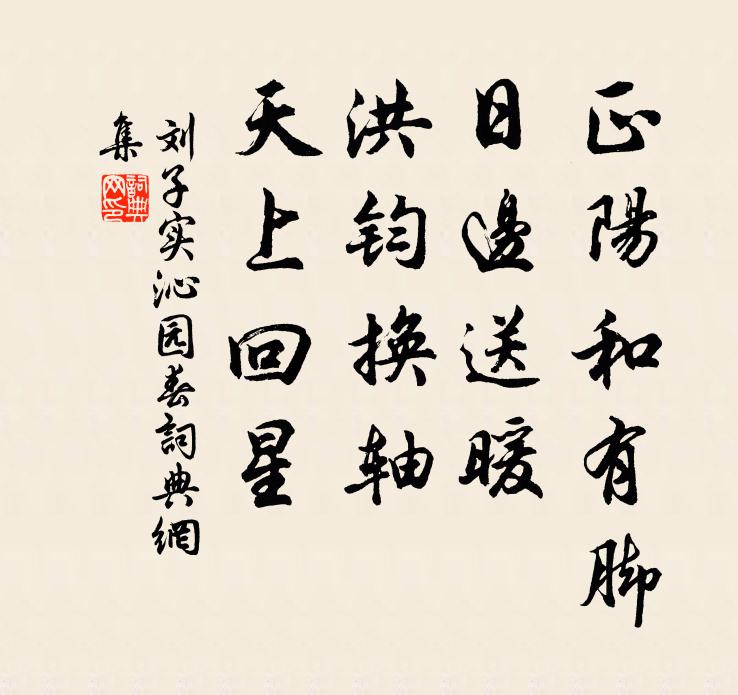 正陽和有脚
日邊送暖
洪鈞換轴
天上回星
刘子实沁园春詞典網
集
詞典
网印